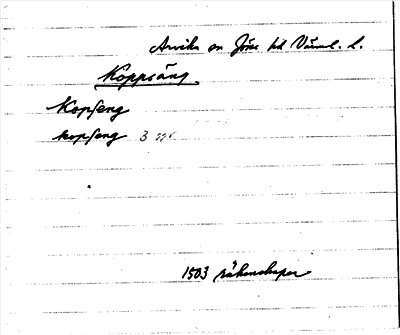 Arvika sn Jösse hd Värml. l.
Koppsäng
Kopseng
kopseng 3 ggr
1503 räkenskaper